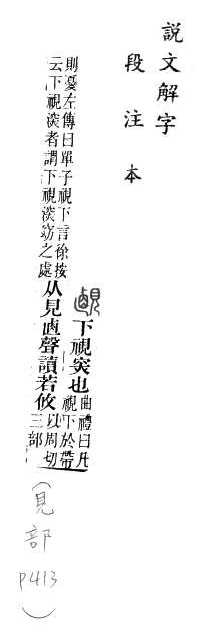 説文解字
段注本
下視突也曲禮曰凡
視下於帶
則憂左傳曰單子視下言徐按
云下視湥者謂下視湥窈之處
从見卥聲讀若攸以周切
三部
（見部 P413）